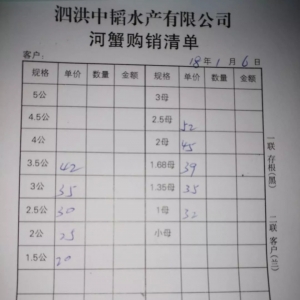 泗洪中韬水产有限公司
河蟹购销清单
客户: 18年1月6日
规格 单价 数量 金额 规格 单价 数量 金额
5公 3母
4.5公 2.5母 52
4公 2母 45
3.5公 42 1.68母 39
3公 35 1.35母 35
2.5公 30 1母 32
2公 25 小母
1.5公 20
一联 存根(黑)
二联 客户(兰)